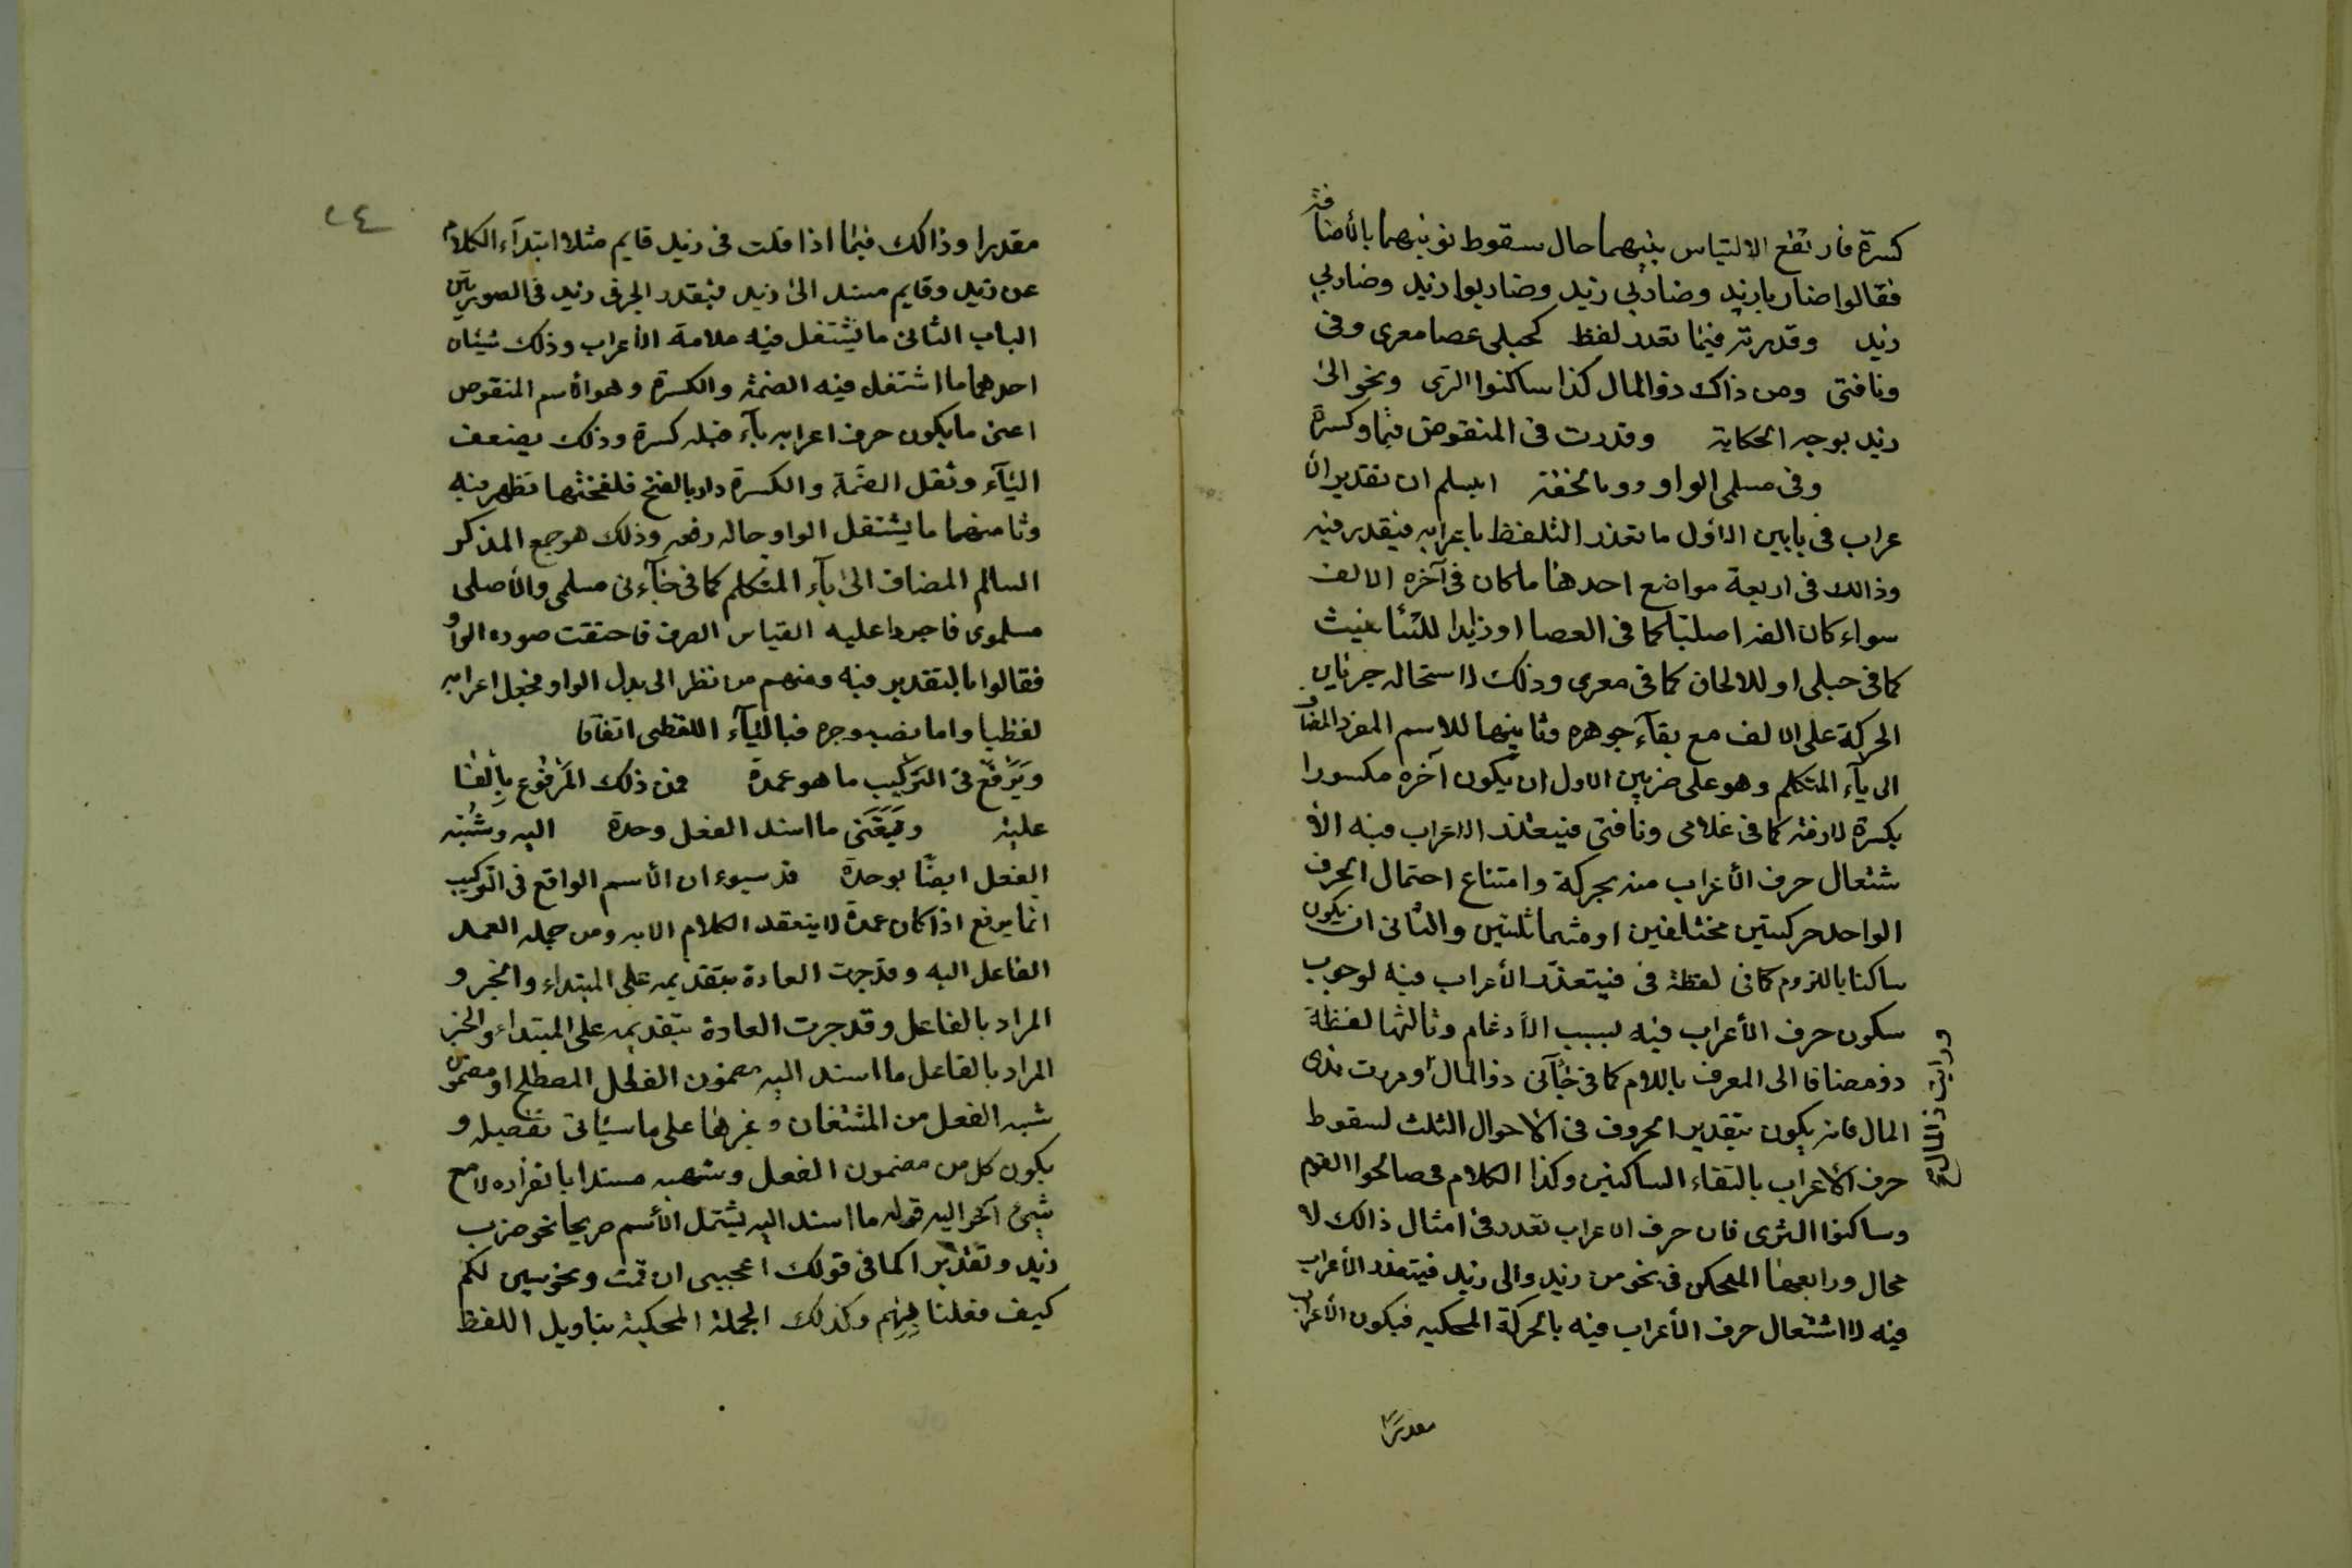 كسرة فارتفع الالتباس بينهما حال سقوط نونيهما بالأضافة
فقالوا ضاربا زيد وضاربي زيد وضاربوا زيد وضاربي
زيد وقدرته فيما تعذر لفظ كحبلى عصا معرى وفى
ونافتى ومن ذاك ذو المال كذا ساكنوا الثرى ونحو الى
زيد بوجه الحكاية وقدرت فى المنقوص وكسرة
وفى مسلمى الواو اعلم ان تقدير الأ
عراب فى بابين الاول ما تعذر التلفظ باعرابه فيقدر فيه
وذالك فى اربعة مواضع احدها ما كان فى آخره الالف
سواء كان الفه اصليا كما فى العصا او زايدا للتأنيث
كما فى حبلى او للالحاق كما فى معرى وذلك لاستحاله جريان
الحركة على الالف مع بقآء جوهره وثانيهما للاسم المفرد المضاف
الى يآء المتكلم وهو على ضربين الاول ان يكون آخره مكسورا
بكسرة لازمة كما فى غلامى ونافتى فيتعذر الاعراب فيه الأ
شتغال حرف الأعراب منه بحركة وامتناع احتمال الحرف
الواحد حركتين مختلفين او متماثلتين والثانى ان يكون
ساكنا باللزوم كما فى لفظة فى فيتعذر الأعراب فيه لوجوب
سكون حرف الأعراب فيه لسبب الأدغام وثالثها لفظة
ذو مضافا الى المعرف باللام كما فى جآنى ذو المال ومررت بذى
ورايت ذا المال صح
المال فانه يكون بتقدير الحروف فى الاحوال الثلث لسقوط
حرف الاعراب بالتقاء الساكنين وكذا الكلام فى صالحوا القوم
وساكنوا الثرى فان حرف الاعراب تعذر فى امثال ذالك لا
محال ورابعها المحكى فى نحو من زيد والى زيد فيتعذر الأعراب
فيه لااشتغال حرف الأعراب فيه بالحركة المحكيه فيكون الأعراب
مقدرًا
٢٤
مقدرا وذالك فيما اذا قلت فى زيد قايم مثلا ابتدآء الكلام
عن زيد وقايم مسند الى زيد فيقدر الجر فى زيد فى الصورتين
الباب الثانى ما يشتغل فيه علامة الأعراب وذلك شيئان
احدهما ما اشتغل فيه الضمة والكسرة وهو الأسم المنقوص
اعنى ما يكون حرف اعرابه يآء قبله كسرة وذلك يضعف
اليآء وثقل الضمة والكسرة دار بالفتح فلفختها تظهر فيه
وثامنهما ما يشتغل الواو حاله رفعه وذلك هو جمع المذكر
السالم المضاف الى يآء المتكلم كما فى جآءنى مسلمى والأصلى
مسلموى فاجروا عليه القياس الصرف فاحتقت صوره الواو
فقالوا بالتقدير فيه ومنهم من نظر الى بدل الواو فجعل اعرابه
لفظيا واما نصبه وجره فباليآء اللفظى اتفاقا
ويرفع فى التركيب ما هو عمدة فمن ذلك المرفوع بالفا
عليه ويعنى ما اسند الفعل وحدة اليه وشبه
الفعل ايضا بوحدة ان الأسم الواقع فى التركيب
انما يرفع اذا كان عمدة لا ينعقد الكلام الا به ومن جمله العمد
الفاعل اليه وقد جرت العادة بتقديمه على المبتداء والخبر و
المراد بالفاعل وقد جرت العادة بتقديمه على المبتداء والخبر
المراد بالفاعل ما اسند اليه مضمون الفعل المصطلح او مضمون
شبه الفعل من المشتقات وغيرها على ما سيأتى تفصيله و
يكون كل من مضمون الفعل وشبهه مسندا بانفراده لا مع
شيئ آخر اليه قوله ما اسند اليه يشتمل الأسم صريحا نحو ضرب
زيد وتقديرا كما فى قولك اعجبنى ان قمت ونحو تبين لكم
كيف فعلنا بهم وكذلك الجملة المحكية بتاويل اللفظ